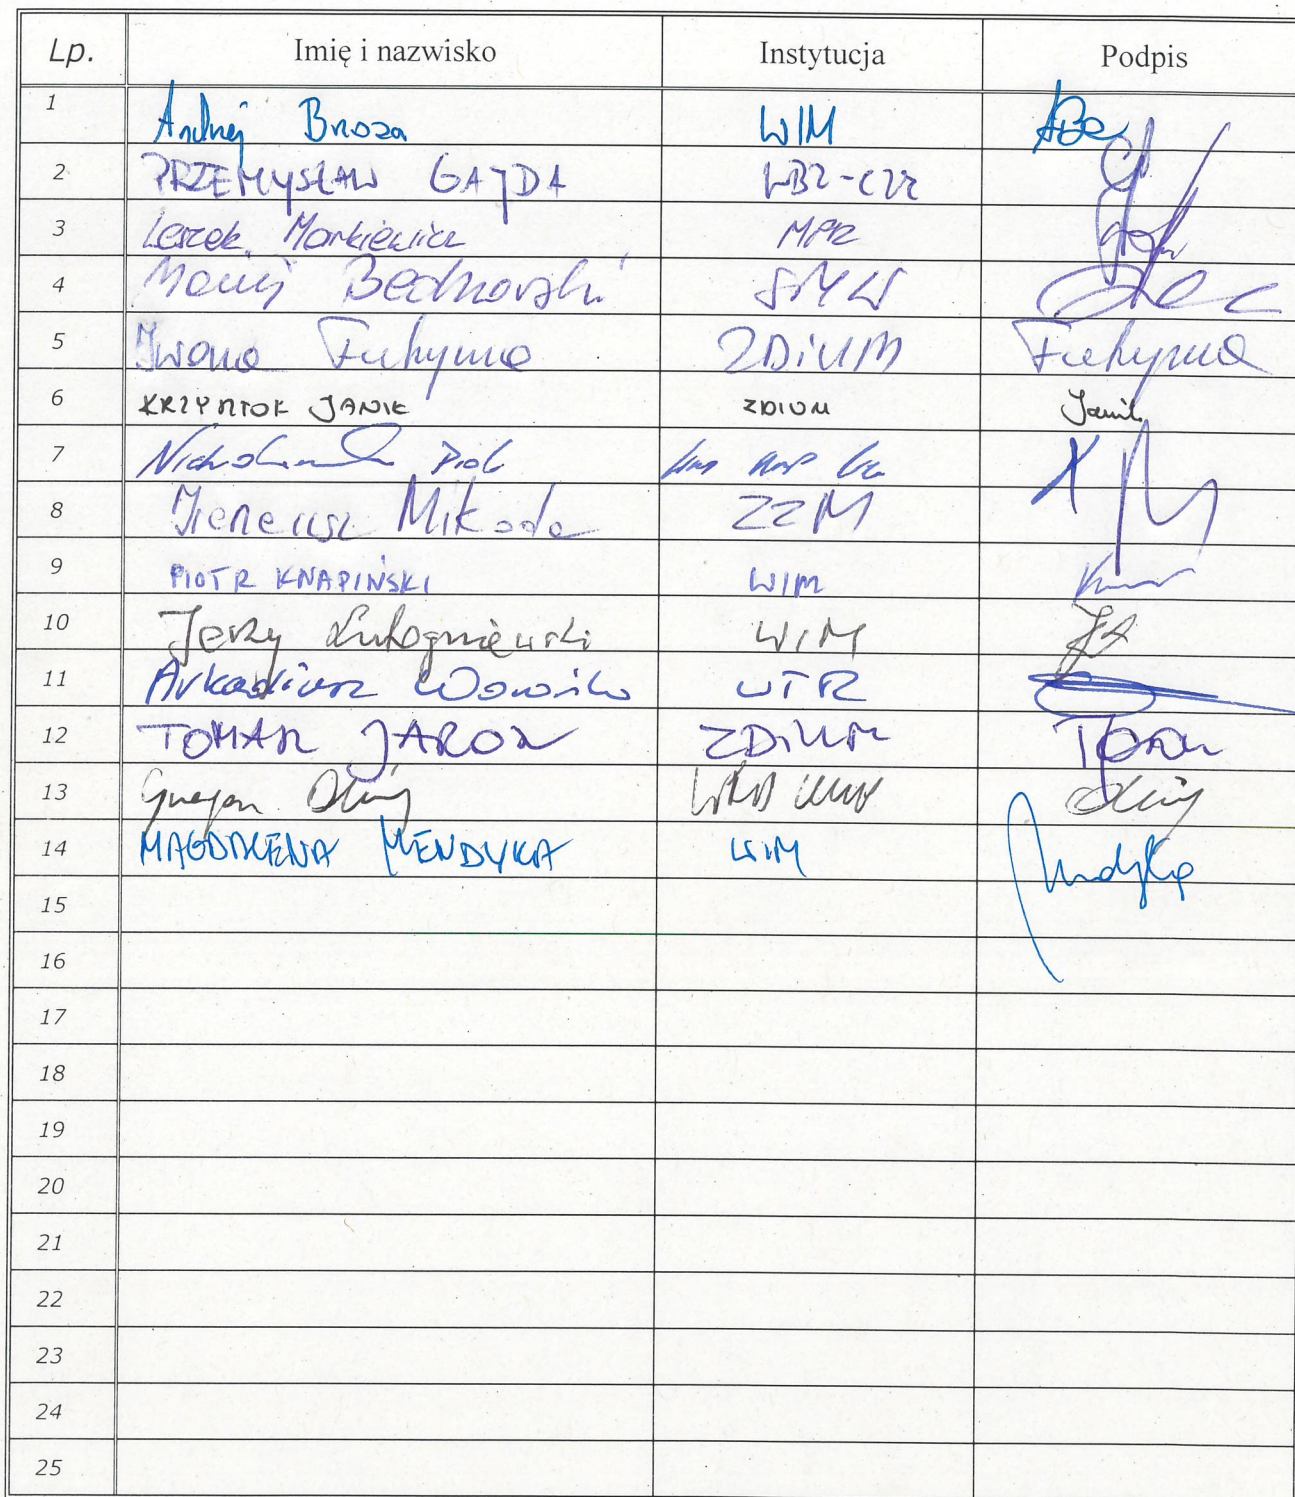 Lp. Imię i nazwisko Instytucja Podpis
1 Andrzej Broza WIM
2 PRZEMYSŁAW GAJDA WBZ-CZK
3 Leszek Markiewicz MPK
4 Maciej Bednarski SMW
5 Iwona ZDiUM
6 KRZYSZTOF JANIK ZDIUM Janik
7 Piotr
8 Ireneusz Mikoda ZZM
9 PIOTR KNAPIŃSKI WIM
10 Jerzy WIM
11 Arkadiusz WTR
12 TOMASZ JAROSZ ZDiUM
13
14 MAGDALENA MENDYKA WIM Mendyka
15
16
17
18
19
20
21
22
23
24
25